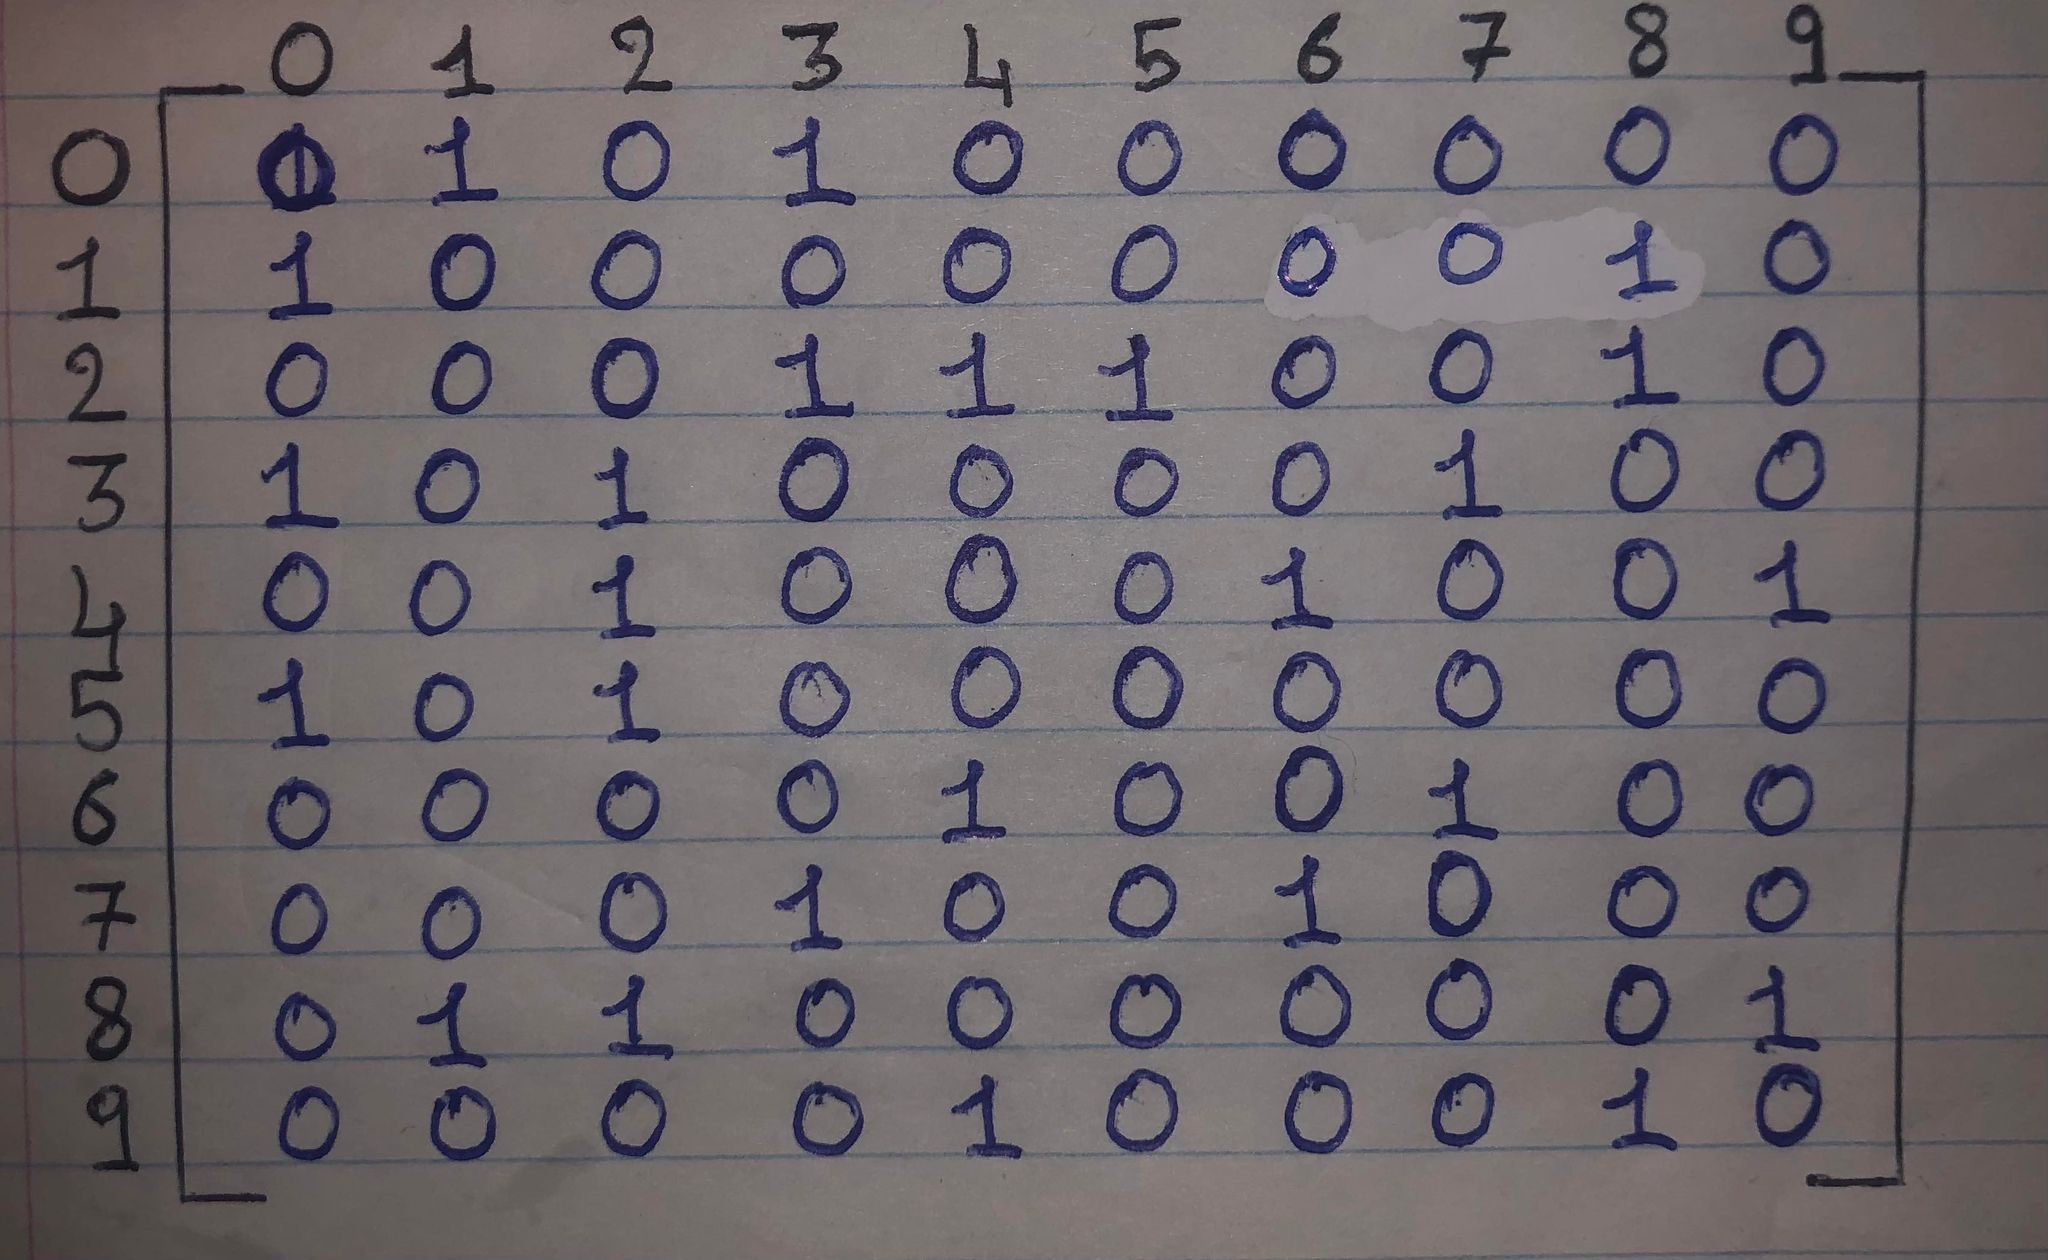 0 1 2 3 4 5 6 7 8 9
0 1 0 1 0 0 0 0 0 0
1 1 0 0 0 0 0 0 0 1 0
2 0 0 0 1 1 1 0 0 1 0
3 1 0 1 0 0 0 0 1 0 0
4 0 0 1 0 0 0 1 0 0 1
5 1 0 1 0 0 0 0 0 0 0
6 0 0 0 0 1 0 0 1 0 0
7 0 0 0 1 0 0 1 0 0 0
8 0 1 1 0 0 0 0 0 0 1
9 0 0 0 0 1 0 0 0 1 0